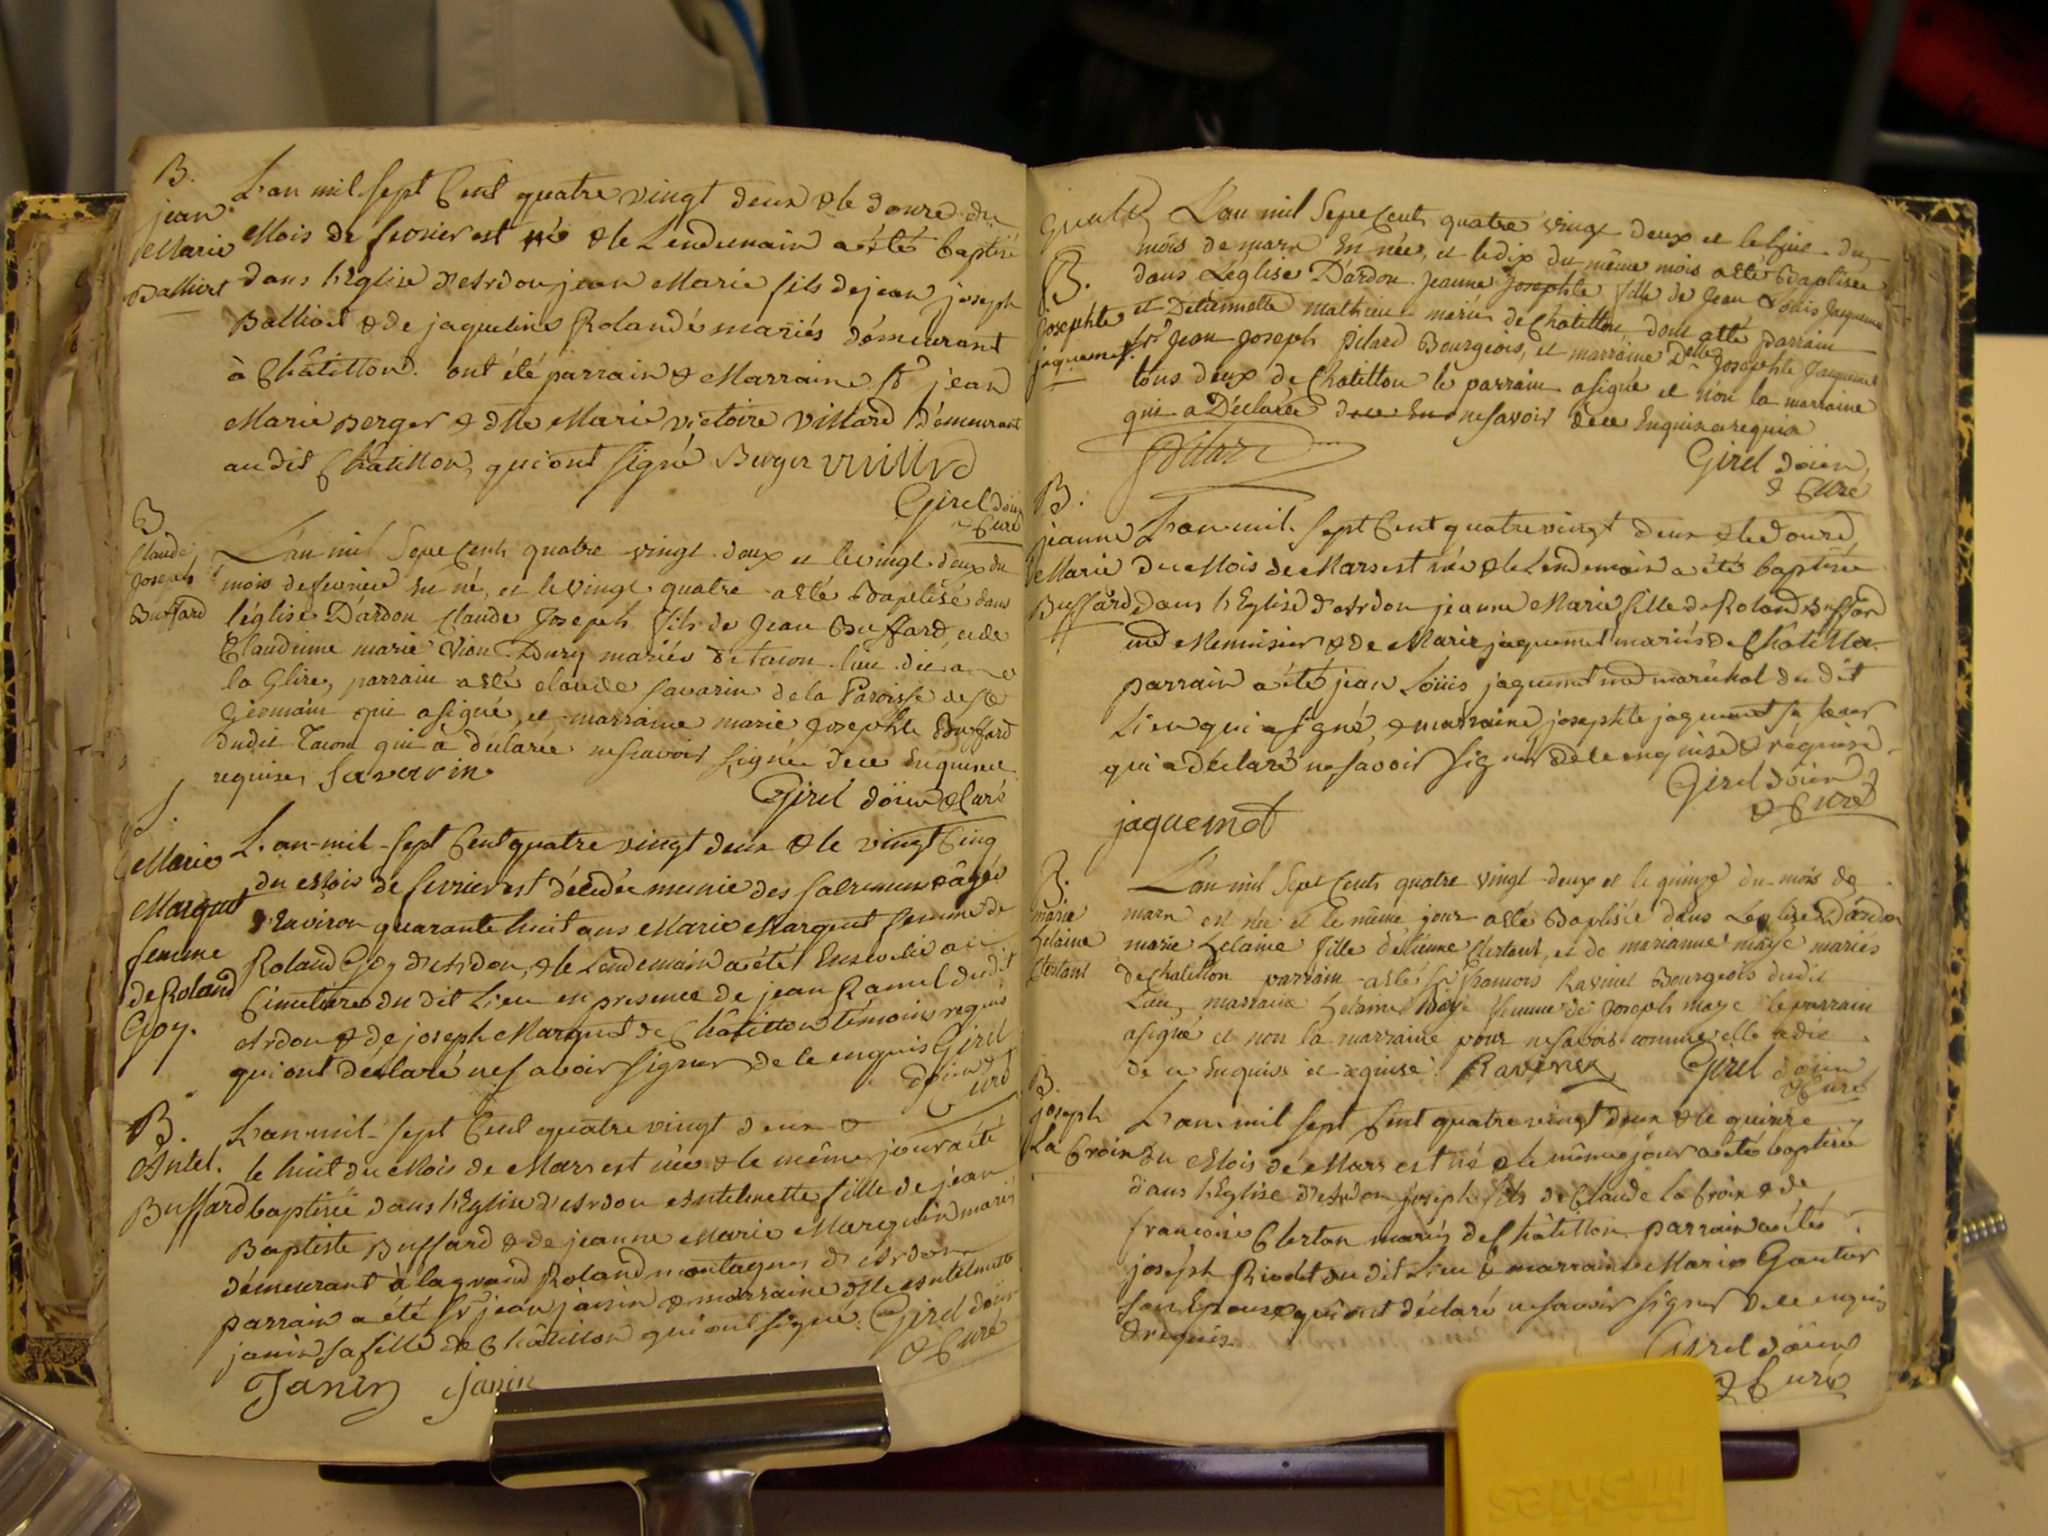 B.
jean
Marie
Balliod
L'an mil sept Cent quatre vingt deux & le douze du
Mois de fevrier est né & le Lendemain a été baptisé
dans l'Eglise d'Ardon jean Marie fils de jean joseph
Balliod & de jaqueline Rolandé mariés démeurant
à Châtillon. ont été parrain & Marraine Sr jean
Marie Berger & dlle Marie victoire Villard démeurant
au dit Châtillon, qui ont signé Berger
Girel döien
& Curé
B
Claude
Joseph
Buffard
L'an mil Sept Cents quatre vingt deux et le vingt deux du
mois de fevrier est né, et le vingt quatre a esté Baptisé dans
l'église D'ardon Claude Joseph fils de Jean Buffard, et de
Claudinne marie Vion Dury mariés de tacon lieu dit a
la Glire, parrain a esté claude Savarin de la Paroisse de St
Germain qui a signé, et marraine marie Josephte Buffard
dudit Tacon qui a déclarée ne scavoir signée de ce Enquise et
requise, Savarin
Girel döien & Curé
S.
Marie
Marquet
femme
de Roland
Goy.
L'an mil sept Cent quatre vingt deux & le vingt Cinq
du Mois de fevrier est décédée munie des sacremens & agée
d'Environ quarante huit ans Marie Marquet femme de
Roland Goy d'Ardon, & le Lendemain a été Ensevelie au
Cimetiere du dit Lieu en presence de jean Ramel du dit
Ardon & de joseph Marquet de Châtillon témoins requis
qui ont déclaré ne savoir signer de le enquis Girel
döien &
Curé
B.
Antel.
Buffard
L'an mil sept Cent quatre vingt deux &
le huit du Mois de Mars est née & le même jour a été
baptisée dans l'Eglise d'Ardon Antelmette fille de jean
Baptiste Buffard & de jeanne Marie Marquin mariés
démeurant à la grand Roland montagnes d'Ardon
parrain a été Sr jean janin & marraine dlle Antelmette
janin sa fille de Châtillon qui ont signé. Girel döien
& Curé
Janin janin
B.
Josephte
jaquemet.
L'an mil Sept Cents quatre vingt deux et le du
mois de mars Est née, et le dix du même mois a esté Baptisée
dans L'église D'ardon Jeanne Josephte fille de Jean Louis Jaquemet
et D'etiennette mathieu mariés de Chatillon dont a esté parrain
Sr Jean Joseph pilard Bourgeois, et marraine Delle Josephte Jaquemet
tous deux de Chatillon le parrain a signé et non la marraine
qui a Déclarée ne savoir de ce Enquise requise
Pilard
Girel döien
& Curé
B.
jeanne
Marie
Buffard
L'an mil sept Cent quatre vingt deux & le douze
du Mois de Mars est née & le Lendemain a été baptisée
dans l'Eglise d'Ardon jeanne Marie fille de Roland Buffard
md Menuisier & de Marie jaquemet mariés de Châtillon
parrain a été jean Loüis jaquemet md maréchal du dit
Lieu qui a signé, & marraine josephte jaquemet sa soeur
qui a déclaré ne savoir signer de le enquise & réquise.
Girel döien
& Curé
jaquemet
B.
marie
helaine
Clertant
L'an mil Sept Cents quatre vingt deux et le quinze du mois de
mars est née et le même jour a esté Baptisée dans L'eglise D'ardon
marie helaine fille d'etienne Clertant, et de marianne maye mariés
de Chatillon parrain a esté Sr francois Ravinet Bourgeois dudit
Lieu, marraine helaine maye femme de Joseph maye le parrain
a signé et non la marraine pour ne savoir comme elle a dit
de ce Enquise et requise. Ravinet Girel döien
& Curé
B.
joseph
La Croix
L'an mil sept Cent quatre vingt deux & le quinze
du Mois de Mars est né & le même jour a été baptisé
dans l'Eglise d'Ardon joseph fils de Claude la Croix & de
francoise Clertan mariés de Châtillon parrain a été
joseph Riodet du dit Lieu & marraine Marie Gautier
son Epouse qui ont déclaré ne savoir signer de le enquis
& requis.
Girel döien
& Curé